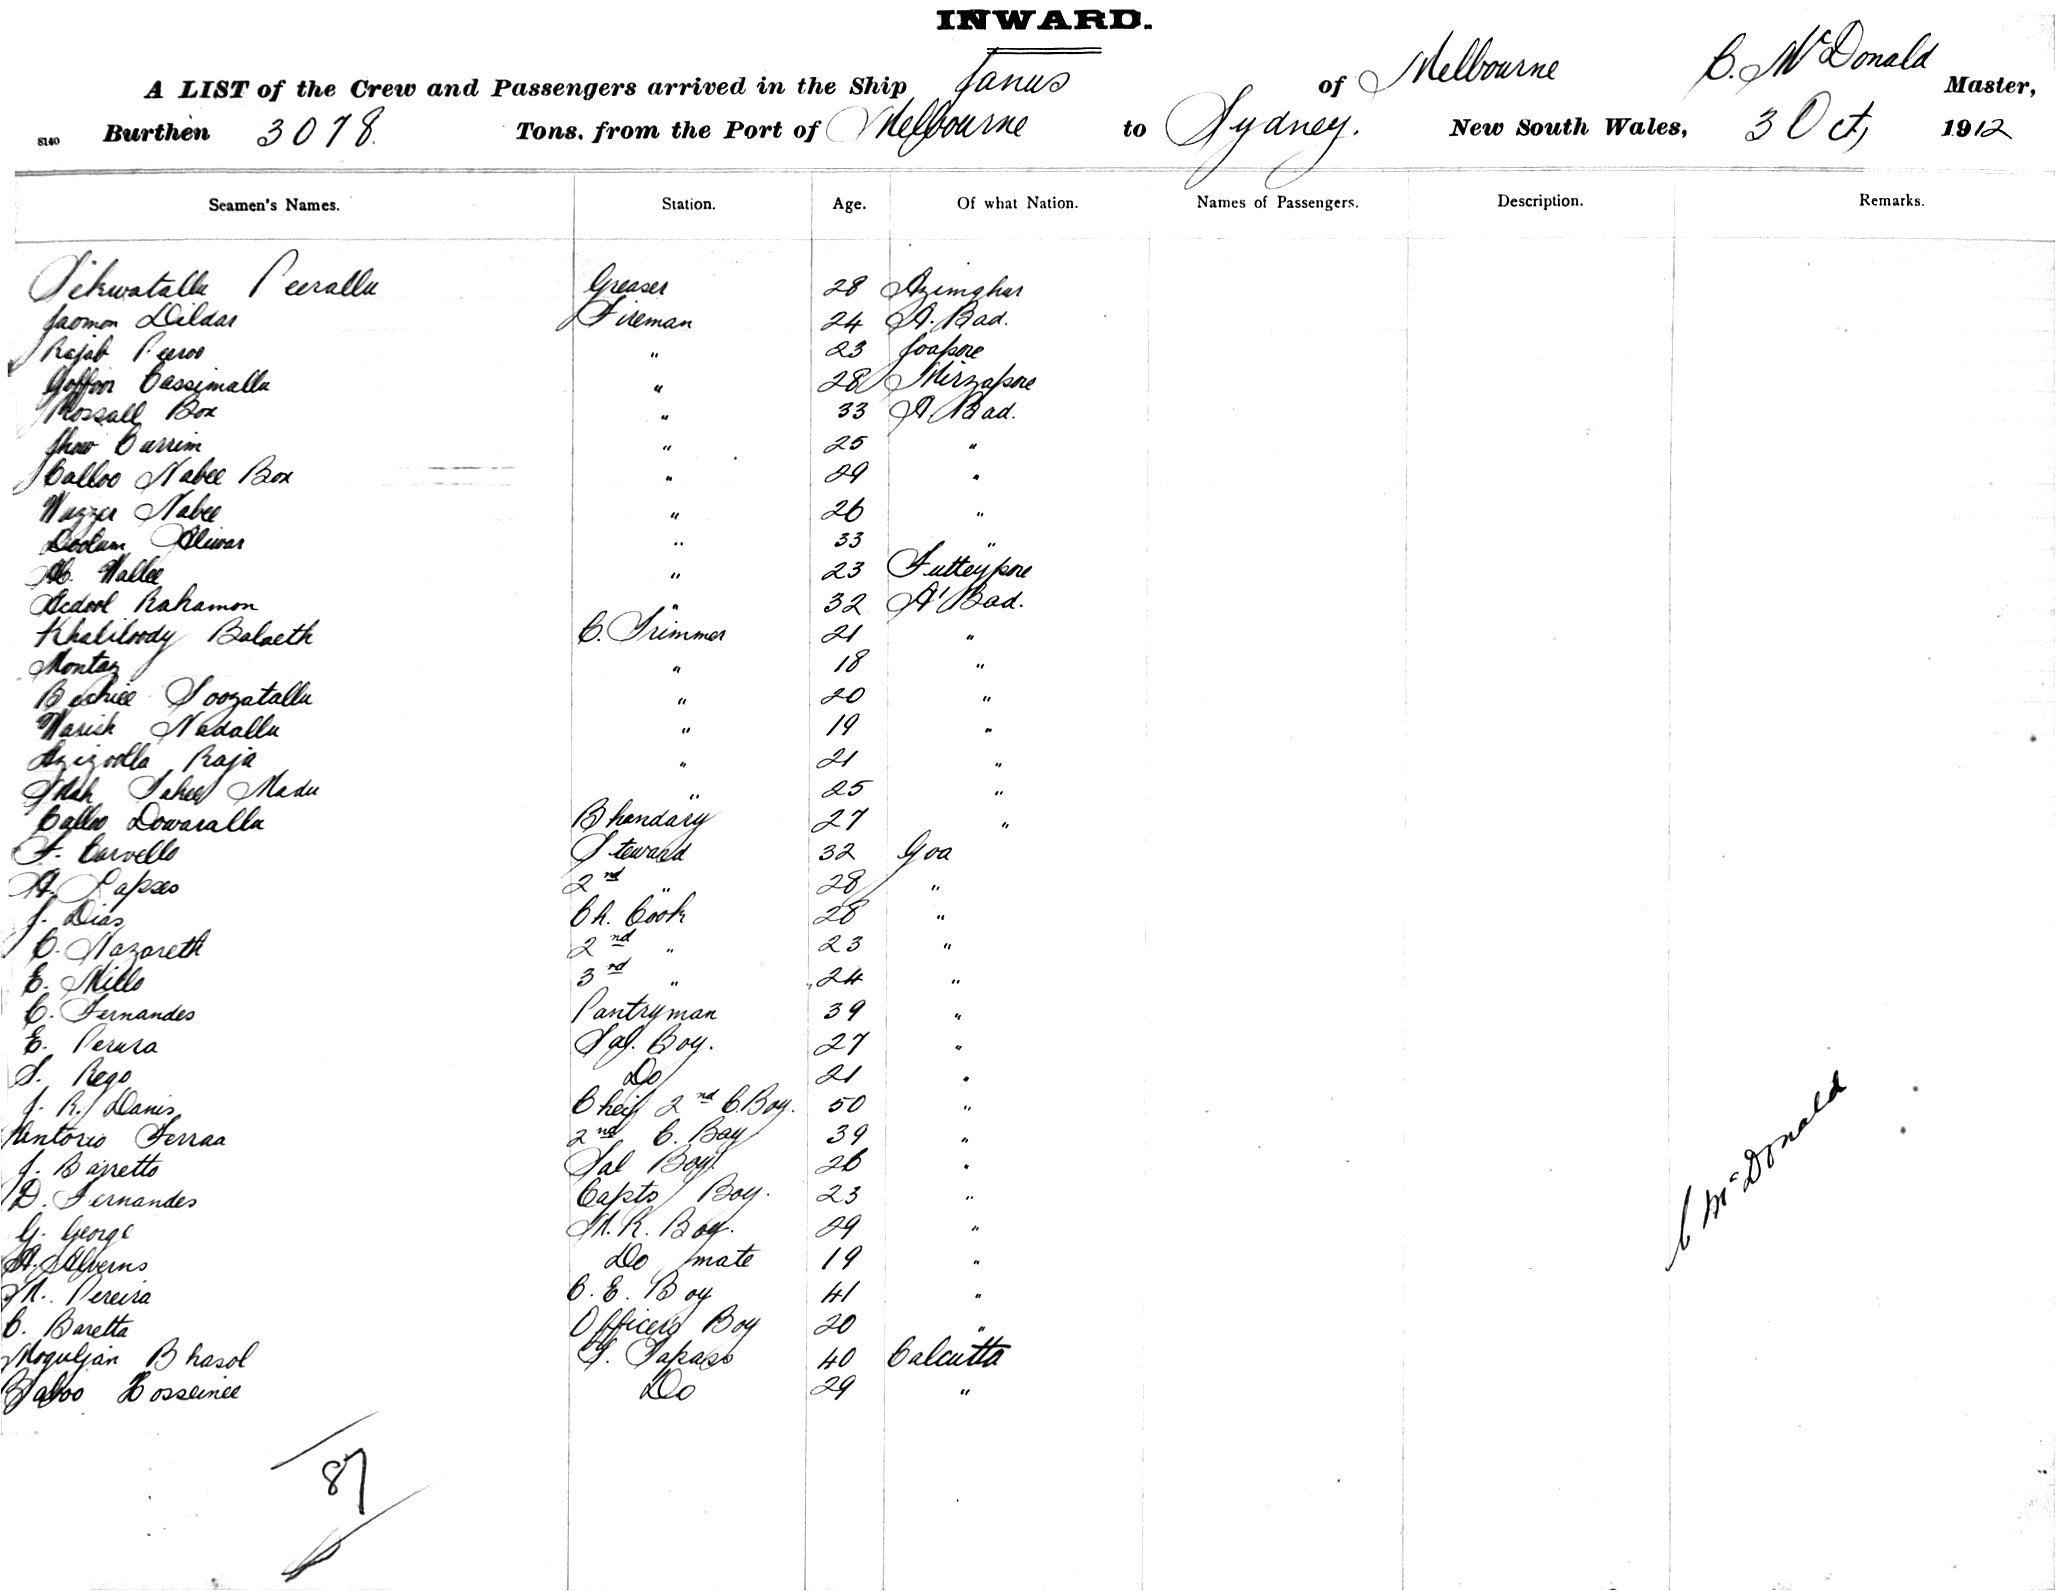 INWARD.
A LIST of the Crew and Passengers arrived in the Ship Janus of Melbourne C. McDonald Master,
8140 Burthen 3078 Tons. from the Port of Melbourne to Sydney. New South Wales, 3 Oct, 1912
Seamen's Names. Station. Age. Of what Nation. Names of Passengers. Description. Remarks.
Peerallu Greaser 28 Azimghar
Jaomon Dildar Fireman 24 A. Bad.
Rajab Peeroo " 23 Joapore
Goffoor Cassimalla " 28 Mirzapore
Rossall Box " 33 A. Bad.
Shaw Currim " 25 "
Calloo Nabee Box " 29 "
Wuzzer Nabee " 26 "
Doolum Aliwar " 33 "
Wallee " 23 Futteypore
Rahamon " 32 A' Bad.
Khaliloody Balaeth C. Trimmer 21 "
Montaz " 18 "
Bechiee Soozatalla " 20 "
Warish Nadalla " 19 "
Azizoolla Raja " 21 "
Madu " 25 "
Calloo Dowaralla Bhandary 27 "
F. Carvello Steward 32 Goa
A. Lapses 2nd " 28 "
J. Dias Ch. Cook 28 "
C. Nazareth 2nd " 23 "
E. Mills 3rd " 24 "
C. Fernandes Pantryman 39 "
E. Perura Sal. Boy. 27 "
S. Rego Do 21 "
J. R. Danis Cheif 2nd C. Boy. 50 "
Antorio Ferraa 2nd C. Boy 39 "
J. Barretto Sal Boy. 26 "
D. Fernandes Capts Boy. 23 "
G. George M. R. Boy. 29 "
A. Alverns Do mate 19 "
M. Pereira C. E. Boy 41 "
C. Baretta Officers Boy 20 "
Moguljan Bhasol F. Topass 40 Calcutta
Baboo Hosseinee Do 29 "
C McDonald
87